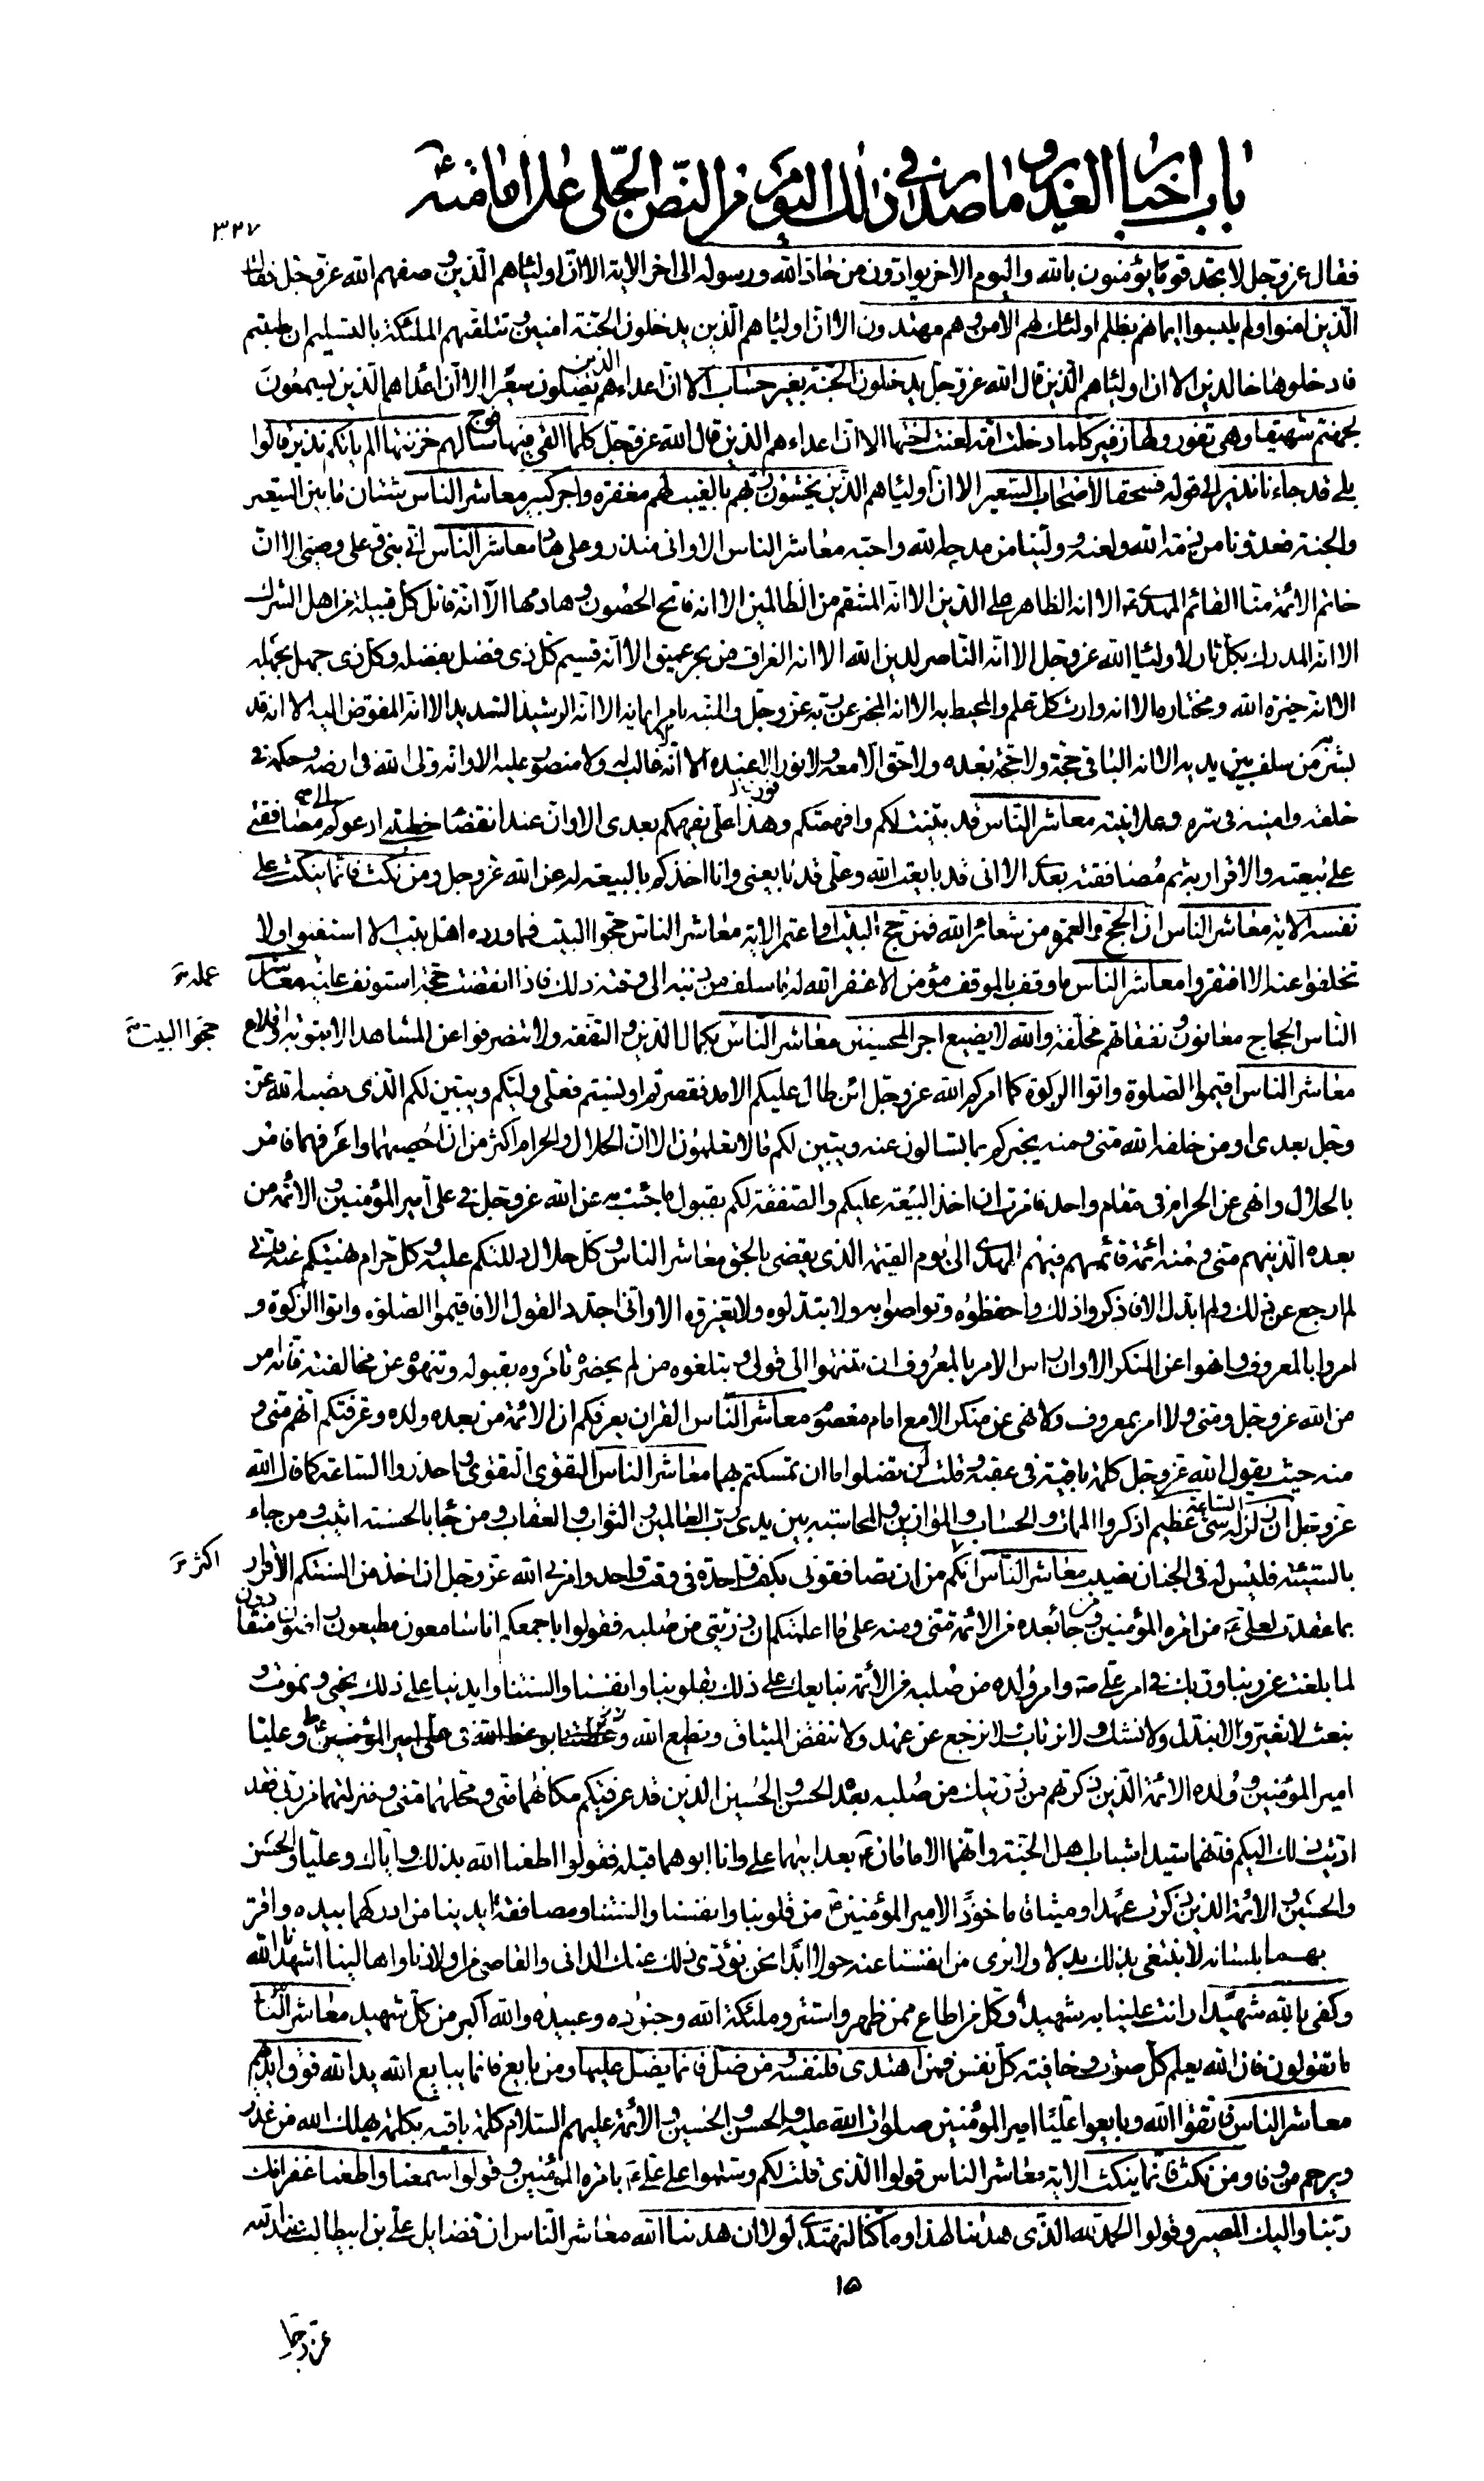 باب اخبار الغدير وما صدر في ذلك اليوم من النص الجلي على امامته
٣٢٧
فقال عز وجل لا تجد قوما يؤمنون بالله واليوم الاخر يوادون من حاد الله ورسوله الى اخر الاية الا ان اولياءهم الذين وصفهم الله عز وجل فقال
الذين امنوا ولم يلبسوا ايمانهم بظلم اولئك لهم الامن وهم مهتدون الا ان اولياءهم الذين يدخلون الجنة امنين وتتلقهم الملئكة بالتسليم ان طبتم
فادخلوها خالدين الا ان اولياءهم الذين قال الله عز وجل يدخلون الجنة بغير حساب الا ان اعداءهم الذين يصلون سعيرا الا ان اعداءهم الذين يسمعون
لجهنم شهيقا وهي تفور ولها زفير كلما دخلت امة لعنت اختها الا ان اعداءهم الذين قال الله عز وجل كلما القي فيها فوج سالهم خزنتها الم ياتكم نذير قالوا
بلى قد جاءنا نذير الى قوله فسحقا لاصحاب السعير الا ان اولياءهم الذين يخشون ربهم بالغيب لهم مغفرة واجر كبير معاشر الناس شتان ما بين السعير
والجنة فعدونا من ذمه الله ولعنه وولينا من مدحه الله واحبه معاشر الناس الا واني منذر وعلي هاد معاشر الناس اني نبي وعلي وصيي الا ان
خاتم الائمة منا القائم المهدي الا انه الظاهر على الدين الا انه المنتقم من الظالمين الا انه فاتح الحصون وهادمها الا انه قاتل كل قبيلة من اهل الشرك
الا انه المدرك بكل ثار لاولياء الله عز وجل الا انه الناصر لدين الله الا انه الغراف من بحر عميق الا انه قسيم كل ذي فضل بفضله وكل ذي جهل بجهله
الا انه خيرة الله ومختاره الا انه وارث كل علم والمحيط به الا انه المخبر عن ربه عز وجل والمنبه بامر ايمانه الا انه الرشيد السديد الا انه المفوض اليه الا انه قد
بشر من سلف بين يديه الا انه الباقي حجة ولا حجة بعده ولا حق الا معه ولا نور الا عنده الا انه لا غالب له ولا منصور عليه الا وانه ولي الله في ارضه وحكمه في
خلقه وامينه في سره وعلانيته معاشر الناس قد بينت لكم وافهمتكم وهذا علي يفهمكم بعدي الا وان عند انقضاء خطبتي ادعوكم الى مصافقتي
على بيعته والاقرار به ثم مصافقته بعدي الا اني قد بايعت الله وعلي قد بايعني وانا اخذكم بالبيعة له عن الله عز وجل ومن نكث فانما ينكث على
نفسه الاية معاشر الناس ان الحج والعمرة من شعائر الله فمن حج البيت او اعتمر الاية معاشر الناس حجوا البيت فما ورده اهل بيت الا استغنوا ولا
تخلفوا عنه الا افتقروا معاشر الناس ما وقف بالموقف مؤمن الا غفر الله له ما سلف من ذنبه الى وقته ذلك فاذا انقضت حجته استونف عليه معاشر
عمله
الناس الحجاج معانون ونفقاتهم مخلفة والله لا يضيع اجر المحسنين معاشر الناس بكمال الدين والتفقه ولا تنصرفوا عن المشاهد الا بتوبة واقلاع
حجوا البيت
معاشر الناس اقيموا الصلوة واتوا الزكوة كما امركم الله عز وجل لئن طال عليكم الامد فقصرتم او نسيتم فعلي وليكم ويبين لكم الذي نصبه الله عز
وجل بعدي او من خلفه الله مني ومنه يخبركم بما تسالون عنه ويبين لكم ما لا تعلمون الا ان الحلال والحرام اكثر من ان احصيهما واعرفهما فامر
بالحلال وانهى عن الحرام في مقام واحد فامرت ان اخذ البيعة عليكم والصفقة لكم بقبول ما جئت به عن الله عز وجل في علي امير المؤمنين والائمة من
بعده الذينهم مني ومنه ائمة قائمهم فيهم المهدي الى يوم القيمة الذي يقضي بالحق معاشر الناس وكل حلال دللتكم عليه وكل حرام نهيتكم عنه فاني
لم ارجع عن ذلك ولم ابدل الا فاذكروا ذلك واحفظوه وتواصوا به ولا تبدلوه ولا تغيروه الا واني اجدد القول الا فاقيموا الصلوة واتوا الزكوة و
امروا بالمعروف وانهوا عن المنكر الا وان راس الامر بالمعروف ان تنتهوا الى قولي وتبلغوه من لم يحضر تامروه بقبوله وتنهوه عن مخالفته فانه امر
من الله عز وجل ومني ولا امر بمعروف ولا نهي عن منكر الا مع امام معصوم معاشر الناس القران يعرفكم ان الائمة من بعده ولده وعرفتكم انهم مني و
منه حيث يقول الله عز وجل كلمة باقية في عقبه وقلت لن تضلوا ما ان تمسكتم بهما معاشر الناس التقوى التقوى واحذروا الساعة كما قال الله
عز وجل ان زلزلة الساعة شيء عظيم اذكروا الممات والحساب والموازين والمحاسبة بين يدي رب العالمين والثواب والعقاب ومن جاء بالحسنة اثيب ومن جاء
بالسيئة فليس له في الجنان نصيب معاشر الناس انكم من ان تصافقوني بكف واحدة في وقت واحد وامرني الله عز وجل ان اخذ من السنتكم الاقرار
اكثر
بما عقدت لعلي من امرة المؤمنين ومن جاء بعده من الائمة مني ومنه على ما اعلمتكم ان ذريتي من صلبه فقولوا باجمعكم انا سامعون مطيعون راضون منقادون
لما بلغت عن ربنا وربك في امر علي وامر ولده من صلبه من الائمة نبايعك على ذلك بقلوبنا وانفسنا والسنتنا وايدينا على ذلك نحيى ونموت و
نبعث لا نغير ولا نبدل ولا نشك ولا نرتاب ولا نرجع عن عهد ولا ننقض الميثاق ونطيع الله وعليا
امير المؤمنين وولده الائمة الذين ذكرتهم من ذريتك من صلبه بعد الحسن والحسين الذين قد عرفتكم مكانهما مني ومحلهما مني ومنزلتهما من ربي فقد
اديت ذلك اليكم فانهما سيدا شباب اهل الجنة وانهما الامامان بعد ابيهما علي وانا ابوهما قبله فقولوا اطعنا الله بذلك واياك وعليا والحسن
والحسين والائمة الذين ذكرت عهدا وميثاقا ماخوذا لامير المؤمنين من قلوبنا وانفسنا والسنتنا ومصافقة ايدينا من ادركهما بيده واقر
بهما بلسانه لا نبتغي بذلك بدلا ولا نرى من انفسنا عنه حولا ابدا نحن نؤدي ذلك عنك الداني والقاصي من اولادنا واهالينا اشهدنا الله
وكفى بالله شهيدا وانت علينا به شهيد وكل من اطاع ممن ظهر واستتر وملئكة الله وجنوده وعبيده والله اكبر من كل شهيد معاشر الناس
ما تقولون فان الله يعلم كل صوت وخافية كل نفس فمن اهتدى فلنفسه ومن ضل فانما يضل عليها ومن بايع فانما يبايع الله يد الله فوق ايديهم
معاشر الناس فاتقوا الله وبايعوا عليا امير المؤمنين صلوات الله عليه والحسن والحسين والائمة عليهم السلام كلمة باقية بكلمة يهلك الله من غدر
ويرحم من وفا ومن نكث فانما ينكث الاية معاشر الناس قولوا الذي قلت لكم وسلموا على علي بامرة المؤمنين وقولوا سمعنا واطعنا غفرانك
ربنا واليك المصير وقولوا الحمد لله الذي هدانا لهذا وما كنا لنهتدي لولا ان هدانا الله معاشر الناس ان فضايل علي بن ابيطالب عند الله
١٥
عز وجل